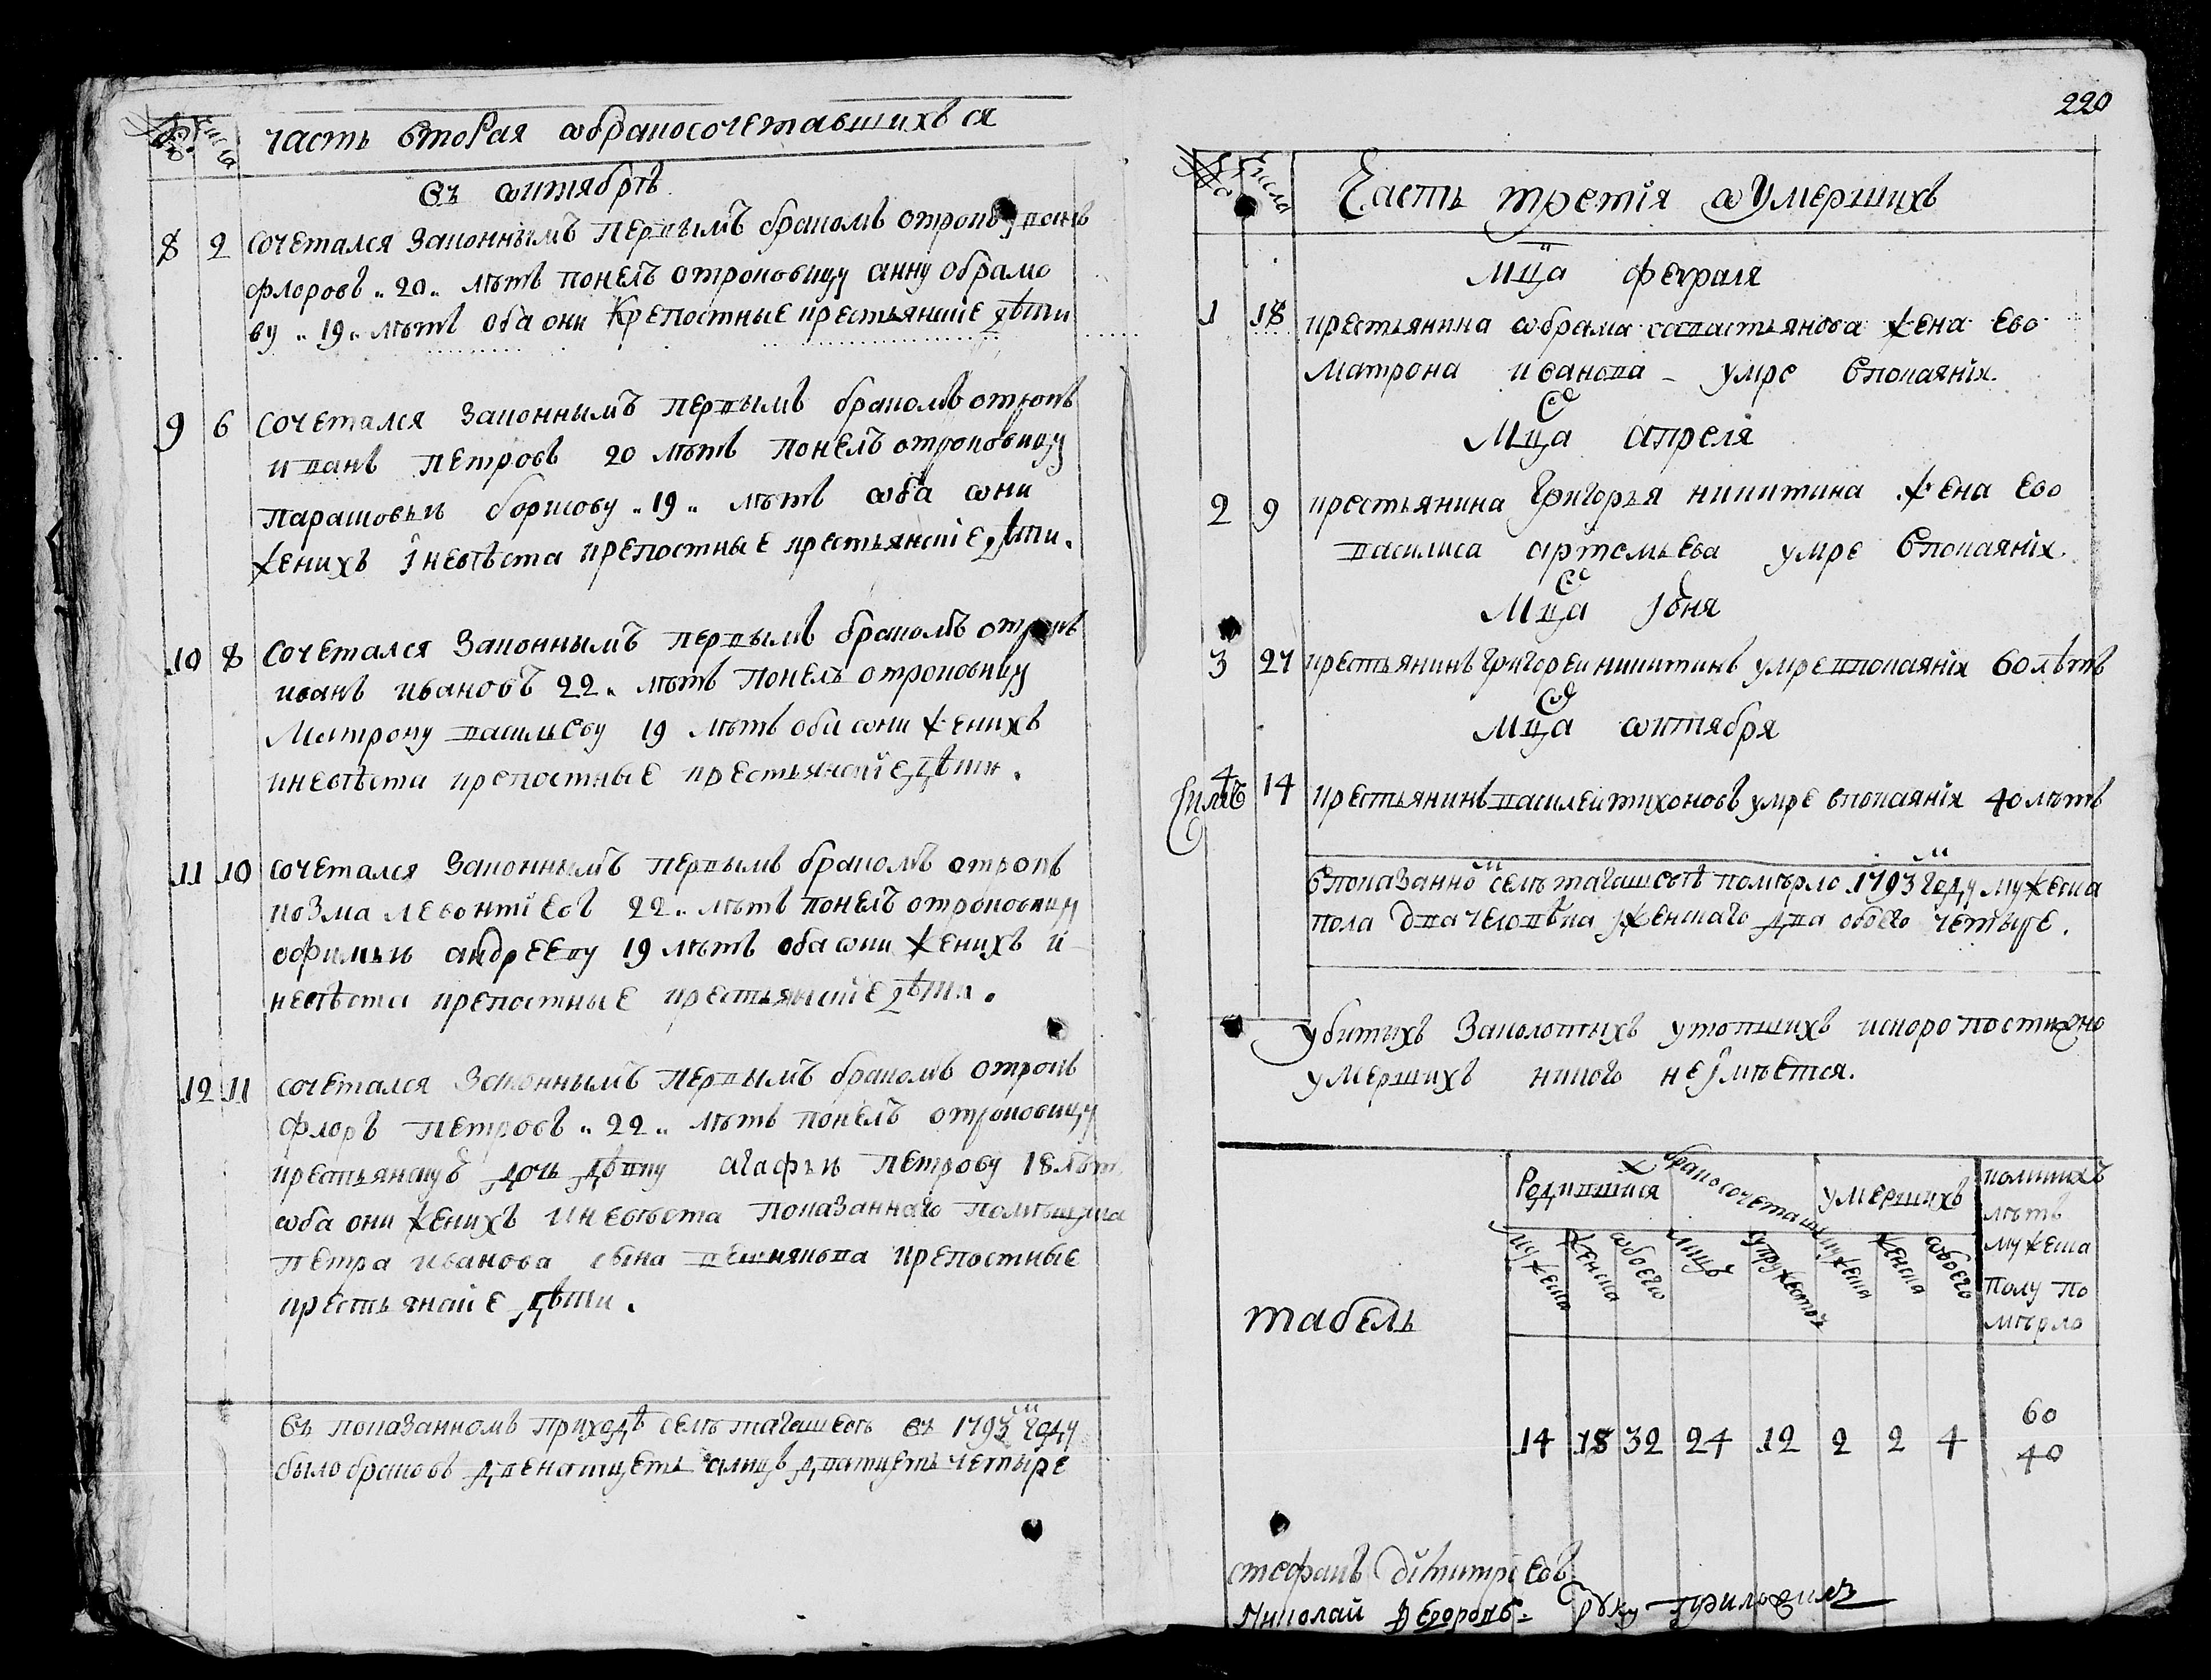 часть вторая ѡбракосочетавшихъся
въ ѡктябрѣ
8 2 сочетался законнымъ первымъ бракомъ отрокъ
флоровъ „20„ лѣтъ понелъ отроковицу анну обрамо
ву „19„ лѣтъ оба они крепостные крестьянские дѣти
9 6 сочетался законнымъ первымъ бракомъ отрокъ
иванъ петровъ 20 лѣтъ понелъ отроковицу
парашовьи борисову „19„ лѣтъ ѡба ѡни
женихъ іневѣста крепостные крестьянскіе дѣти.
10 8 сочетался законнымъ первымъ бракомъ отрокъ
иванъ ивановъ 22„ лѣтъ понелъ отроковицу
Матрону васильеву 19 лѣтъ оба ѡни женихъ
иневѣста крепостные крестьянскіе дѣти.
11 10 сочетался законнымъ первымъ бракомъ отрокъ
козма левонтіевъ 22„ лѣтъ понелъ отроковицу
офимьи андрееву 19 лѣтъ оба ѡни женихъ и
невѣста крепостные крестьянскіе дѣти.
12 11 сочетался законнымъ первымъ бракомъ отрокъ
флоръ петровъ „22„ лѣтъ понелъ отроковицу
крестьянскую дочь дѣвку агафьи петрову 18 лѣтъ
ѡба они женихъ иневѣста показаннаго помѣщика
петра иванова сына вешнякова крепостные
крестьянскіе дѣти.
въ показанномъ приходѣ селѣ въ 1793м году
было браковъ двенатцеть алицъ дватцеть четыре
220
числа
Часть третія ѡумершихъ
Мца февраля
1 18 крестьянина ѡбрама савастьянова жена ево
матрона иванова – умре впокаяніи.
Мца апреля
2 9 крестьянина григорья никитина жена ево
василиса артемьева умре впокаяніи.
Мца іюня
3 27 крестьянинъ григореи никитинъ умре впокаяніи 60 лѣтъ
Мца ѡктября
4 14 крестьянинъ василеи тихоновъ умре впокаяніи 40 лѣтъ
впоказанном селѣ помѣрло 1793м году мужеска
пола два человѣка іженскаго два обоего четыре.
убитыхъ заколотыхъ утопшихъ искоропостижно
умершихъ никого неімѣется.
родившися бракосочеташихъ умершихъ коликихъ
лѣтъ
мужеска женска ѡбоего лицъ супружествъ мужеска женска ѡбоего мужеска
полу по
мѣрло
табель
14 18 32 24 12 2 2 4 60
40
стефанъ дімитріевъ
Николай Ѳедоровъ руку приложилъ